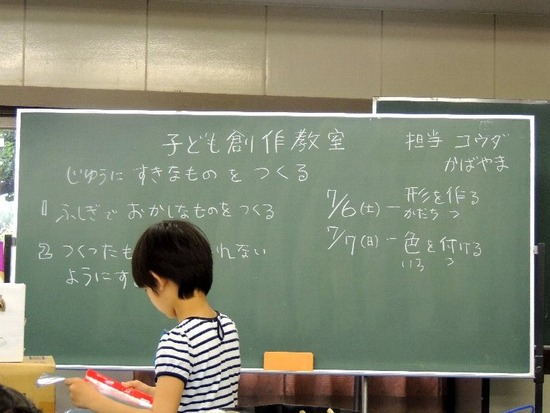 子ども創作教室
じゆうに すきなものをつくる
1 ふしぎで おかしなものをつくる
2 つくったも れない
ようにす
担当 コウダ
かばやま
7/6(土)－形を作る
かたち つ
7/7(日)－色を付ける
いろ つ